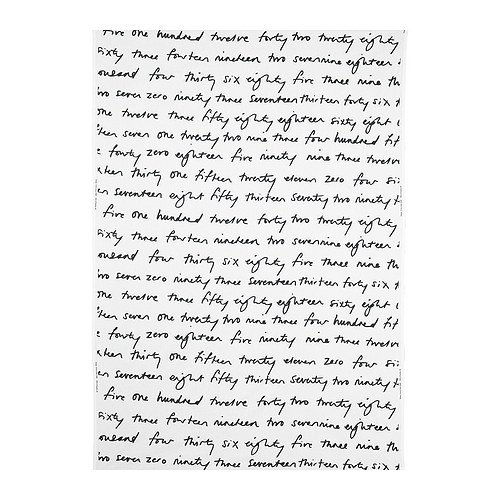 five one hundred twelve forty two twenty eighty
sixty three fourteen nineteen two seven nine eighteen
ousand four thirty six eighty five three nine th
wo seven zero ninety three seventeen thirteen forty six t
one twelve three fifty eighty eighteen sixty eight
teen seven one twenty two nine three four hundred fif
e fourty zero eighteen five ninety nine three twelve
teen thirty one fifteen twenty eleven zero four si
en seventeen eight fifty thirteen seventy two ninety
five one hundred twelve forty two twenty eighty
sixty three fourteen nineteen two seven nine eighteen
ousand four thirty six eighty five three nine th
wo seven zero ninety three seventeen thirteen forty six t
one twelve three fifty eighty eighteen sixty eight
teen seven one twenty two nine three four hundred fif
e fourty zero eighteen five ninety nine three twelve
teen thirty one fifteen twenty eleven zero four si
en seventeen eight fifty thirteen seventy two ninety
five one hundred twelve forty two twenty eighty
sixty three fourteen nineteen two seven nine eighteen
ousand four thirty six eighty five three nine th
wo seven zero ninety three seventeen thirteen forty six t